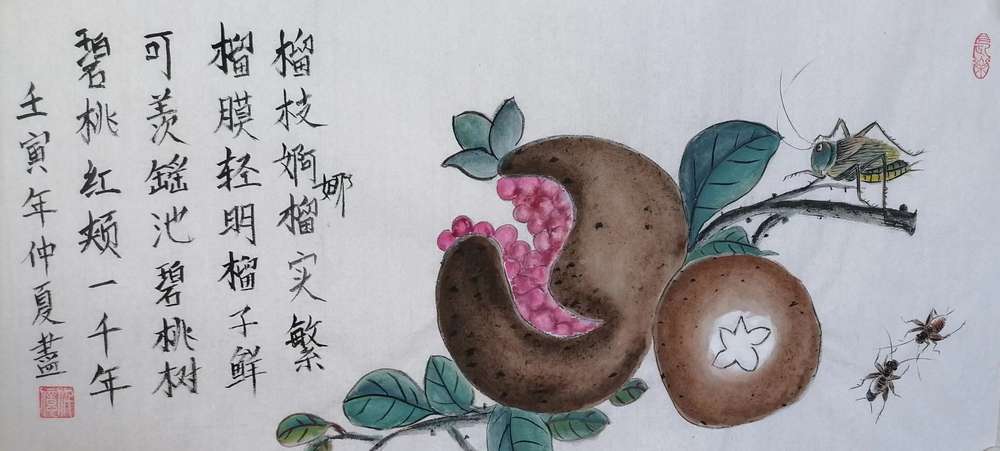 榴枝婀娜榴实繁
榴膜轻明榴子鲜
可羡瑶池碧桃树
碧桃红颊一千年
壬寅年仲夏